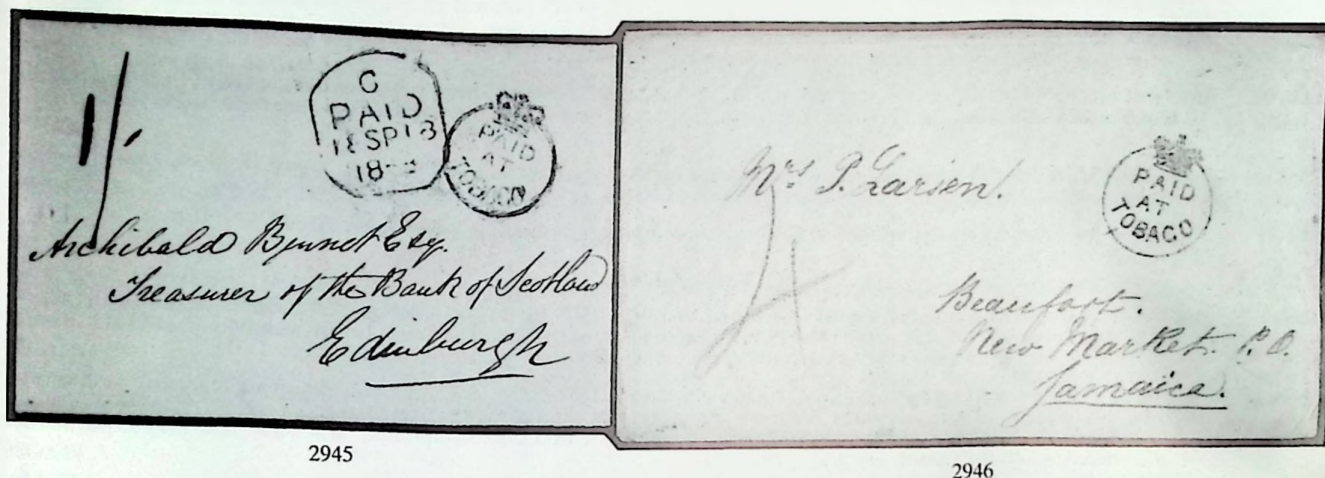 1/-
C
PAID
18 SP 18
PAID
AT
TOBAGO
Archibald Bennet Esq.
Treasurer of the Bank of Scotland
Edinburgh
2945
Mrs P. Larsen.
PAID
AT
TOBAGO
4
Beaufort.
New Market. P.O.
Jamaica.
2946